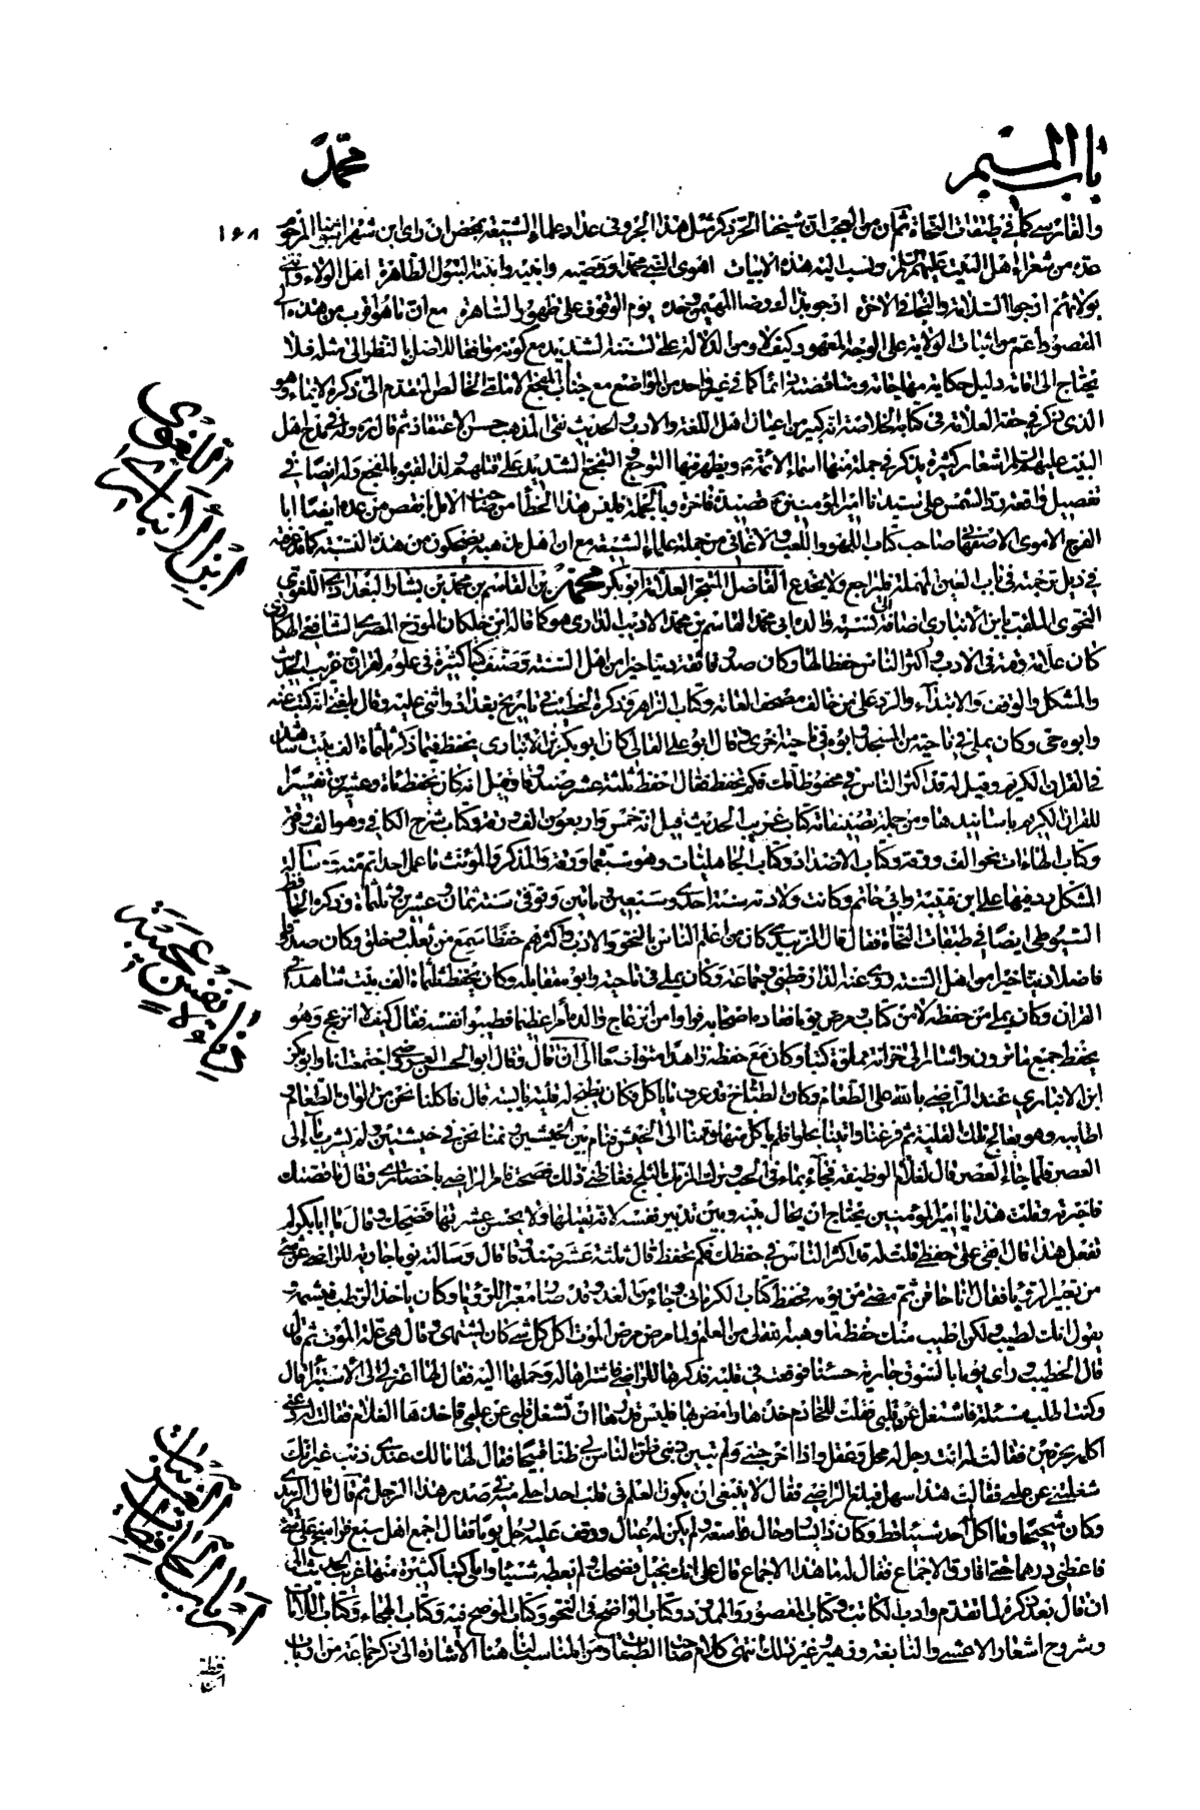 باب الميم
محمد
١٦٨
والفارسي كما في طبقات النحاة ثم ان من العجب ان شيخنا الحر ذكر مثل هذا الجرو في عداد علماء الشيعة بمحض ان رأى ابن شهراشوب
عده من شعراء اهل البيت عليهم السلام ونسب اليه هذه الابيات اهوى النبي محمدا ووصيه وابنيه وابنته البتول الطاهرة اهل الولاء
بولائهم ارجو السلامة والنجا في الاخرة ارجو بذاك رضا المهيمن وحده يوم الوقوف على ظهور الساهرة مع ان ما هو اقرب من هذه الى
المقصود اعم من اثبات الولاية على الوجه المعهود كيف لا ومن الدلالة على تسننه الشديد مع كونه موافقا للاصل بالنظر الى مثله فلا
يحتاج الى اقامة دليل حكاية مهاجاته ومناقضته دائما كما في غير واحد من المواضع مع جناب المفجع الامامي الخالص المتقدم الى ذكره الايماء وهو
الذي ذكر في حقه العلامة في كتابه الخلاصة انه كبير من اعيان اهل اللغة والادب والحديث نقي المذهب حسن الاعتقاد ثم قال وله في مدح اهل
البيت عليهم السلام اشعار كثيرة يذكر في جملة منها اسماء الائمة ويظهر فيها التوجع والتفجع الشديد على قتلهم ولذا لقبوه بالمفجع وله ايضا في
تفصيل واقعة رد الشمس على سيدنا امير المؤمنين قصيدة فاخرة وبالجملة فليس هذا الخطأ من صاحب الامل بانقص من عده ايضا ابا
الفرج الاموي الاصفهاني صاحب كتاب اللهو واللعب والاغاني من جملة علماء الشيعة مع ان اهل مذهبه يضحكون من هذه النسبة كما قد عرفته
في ذيل ترجمته في باب العين المهملة فليراجع ولا يخدع الفاضل المتبحر العلامة ابو بكر محمد بن القاسم بن محمد بن بشار البغدادي اللغوي
النحوي الملقب بابن الانباري اضافة الى نسبته والده ابي محمد القاسم بن محمد الاديب الذي هو كما قاله ابن خلكان المورخ المصري الشافعي الهكاري
كان علامة وقته في الادب واكثر الناس حفظا لها وكان صدوقا ثقة دينا خيرا من اهل السنة وصنف كتبا كثيرة في علوم القران وغريب الحديث
والمشكل والوقف والابتداء والرد على من خالف مصحف العامة وكتاب الزاهر وذكره الخطيب في تاريخ بغداد واثنى عليه وقال بلغني انه كتب عنه
وابوه حي وكان يملي في ناحية من المسجد وابوه في ناحية اخرى وقال ابو علي القالي كان ابو بكر بن الانباري يحفظ فيما ذكر ثلثمائة الف بيت شاهد
في القران الكريم وقيل له قد اكثر الناس في محفوظاتك فكم تحفظ فقال احفظ ثلثة عشر صندوقا وقيل انه كان يحفظ مائة وعشرين تفسيرا
للقران الكريم باسانيدها ومن جملة تصنيفاته كتاب غريب الحديث قيل انه خمس واربعون الف ورقة وكتاب شرح الكافي وهو الف ورقة
وكتاب الهاءات نحو الف ورقة وكتاب الاضداد وكتاب الجاهليات وهو سبعمأة ورقة والمذكر والمؤنث ما عمل احد اتم منه ورسالة
المشكل رد فيها على ابن قتيبة وابي حاتم وكانت ولادته سنة احدى وسبعين ومائتين وتوفي سنة ثمان وعشرين وثلثمأة وذكره الحافظ
السيوطي ايضا في طبقات النحاة فقال قال الزبيدي كان من اعلم الناس بالنحو والادب واكثرهم حفظا سمع من ثعلب وخلق وكان صدوقا
فاضلا دينا خيرا من اهل السنة روى عنه الدارقطني وجماعة وكان يملي في ناحية وابوه مقابله وكان يحفظ ثلثمأة الف بيت شاهد في
القران وكان يملي من حفظه لا من كتاب ومرض يوما فعاده اصحابه فراوا من انزعاج والده امرا عظيما فطيبوا نفسه فقال كيف لا انزعج وهو
يحفظ جميع ما ترون واشار الى خزانة مملوة كتبا وكان مع حفظه زاهدا متواضعا الى ان قال وقال ابو الحسن العروضي اجتمعت انا وابو بكر
ابن الانباري عند الراضي بالله على الطعام وكان الطباخ قد عرف ما ياكل وكان يطبخ له قلية يابسة قال فاكلنا نحن من الوان الطعام
اطايبه وهو يعالج تلك القلية ثم فرغنا واتينا بحلوا فلم ياكل منها وقمنا الى الخيش فنام بين الخيشين ونمنا نحن في خيشين ولم يشرب ماء الى
العصر فلما جاء العصر قال لغلام الوظيفة فجاءه بماء في الحب وترك المزمل بالثلج فغاظني ذلك فصحت فامر الراضي باحضاري وقال ما قصتك
فاخبرته وقلت هذا يا امير المؤمنين يحتاج ان يحال بينه وبين تدبير نفسه لانه يقتلها ولا يحسن عشرتها فضحك وقال يا ابا بكر لم
تفعل هذا قال ابقي على حفظي قلت له قد اكثر الناس في حفظك فكم تحفظ قال ثلثة عشر صندوقا قال وسالته يوما جارية للراضي عن شيء
من تعبير الرويا فقال انا حاقن ثم مضى من يومه فحفظ كتاب الكرماني وجاء من الغد وقد صار معبرا للرؤيا وكان ياخذ الرطب فيشمه و
يقول انك لطيب ولكن اطيب منك حفظ ما وهبه الله لي من العلم ولما مرض مرض الموت اكل كل شيء كان يشتهي وقال هي علة الموت ثم قال
قال الخطيب وراى يوما بالسوق جارية حسناء فوقعت في قلبه فذكرها للراضي فاشتراها له وحملها اليه فقال لها اعتزلي الى الاستبراء قال
وكنت اطلب مسئلة فاشتغل عن قلبي فقلت للخادم خذها وامض بها فليس قدرها ان تشغل قلبي عن علمي فاخذها الغلام فقالت له دعني
اكلمه بحرفين فقالت له انت رجل لك محل وعقل واذا اخرجتني ولم تبين ذنبي ظن الناس بي ظنا قبيحا فقال لها مالك عندي ذنب غير انك
شغلتني عن علمي فقالت هذا سهل فبلغ الراضي فقال لا ينبغي ان يكون العلم في قلب احد احلى منه في صدر هذا الرجل ثم قال قال الزبيدي
وكان شحيحا وما اكل احد شيئا قط وكان ذا يسار وحال واسعة ولم يكن له عيال ووقف عليه رجل يوما فقال اجمع اهل سبع فراسخ على شيء
فاعطني درهما حتى افارق الاجماع فقال له ما هذا الاجماع قال على انك بخيل فضحك ولم يعطه شيئا واملى كتبا كثيرة منها غريب الحديث الى
ان قال بعد ذكره لما تقدم وادب الكاتب وكتاب المقصور والممدود وكتاب الواضح في النحو وكتاب الموضح فيه وكتاب الهجاء وكتاب اللامات
وشروح اشعار الاعشى والنابغة وزهير وغير ذلك انتهى كلام صاحب الطبقات ومن المناسب لنا هنا الاشارة الى ذكر جماعة من ارباب
ابن الانباري اللغوي